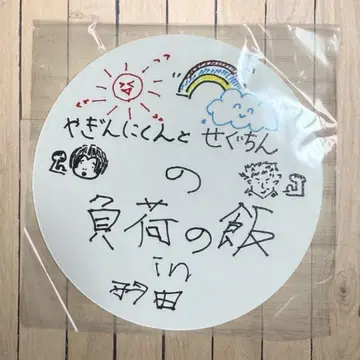 やぎんにくんと せぐちん
の
負荷の飯
in